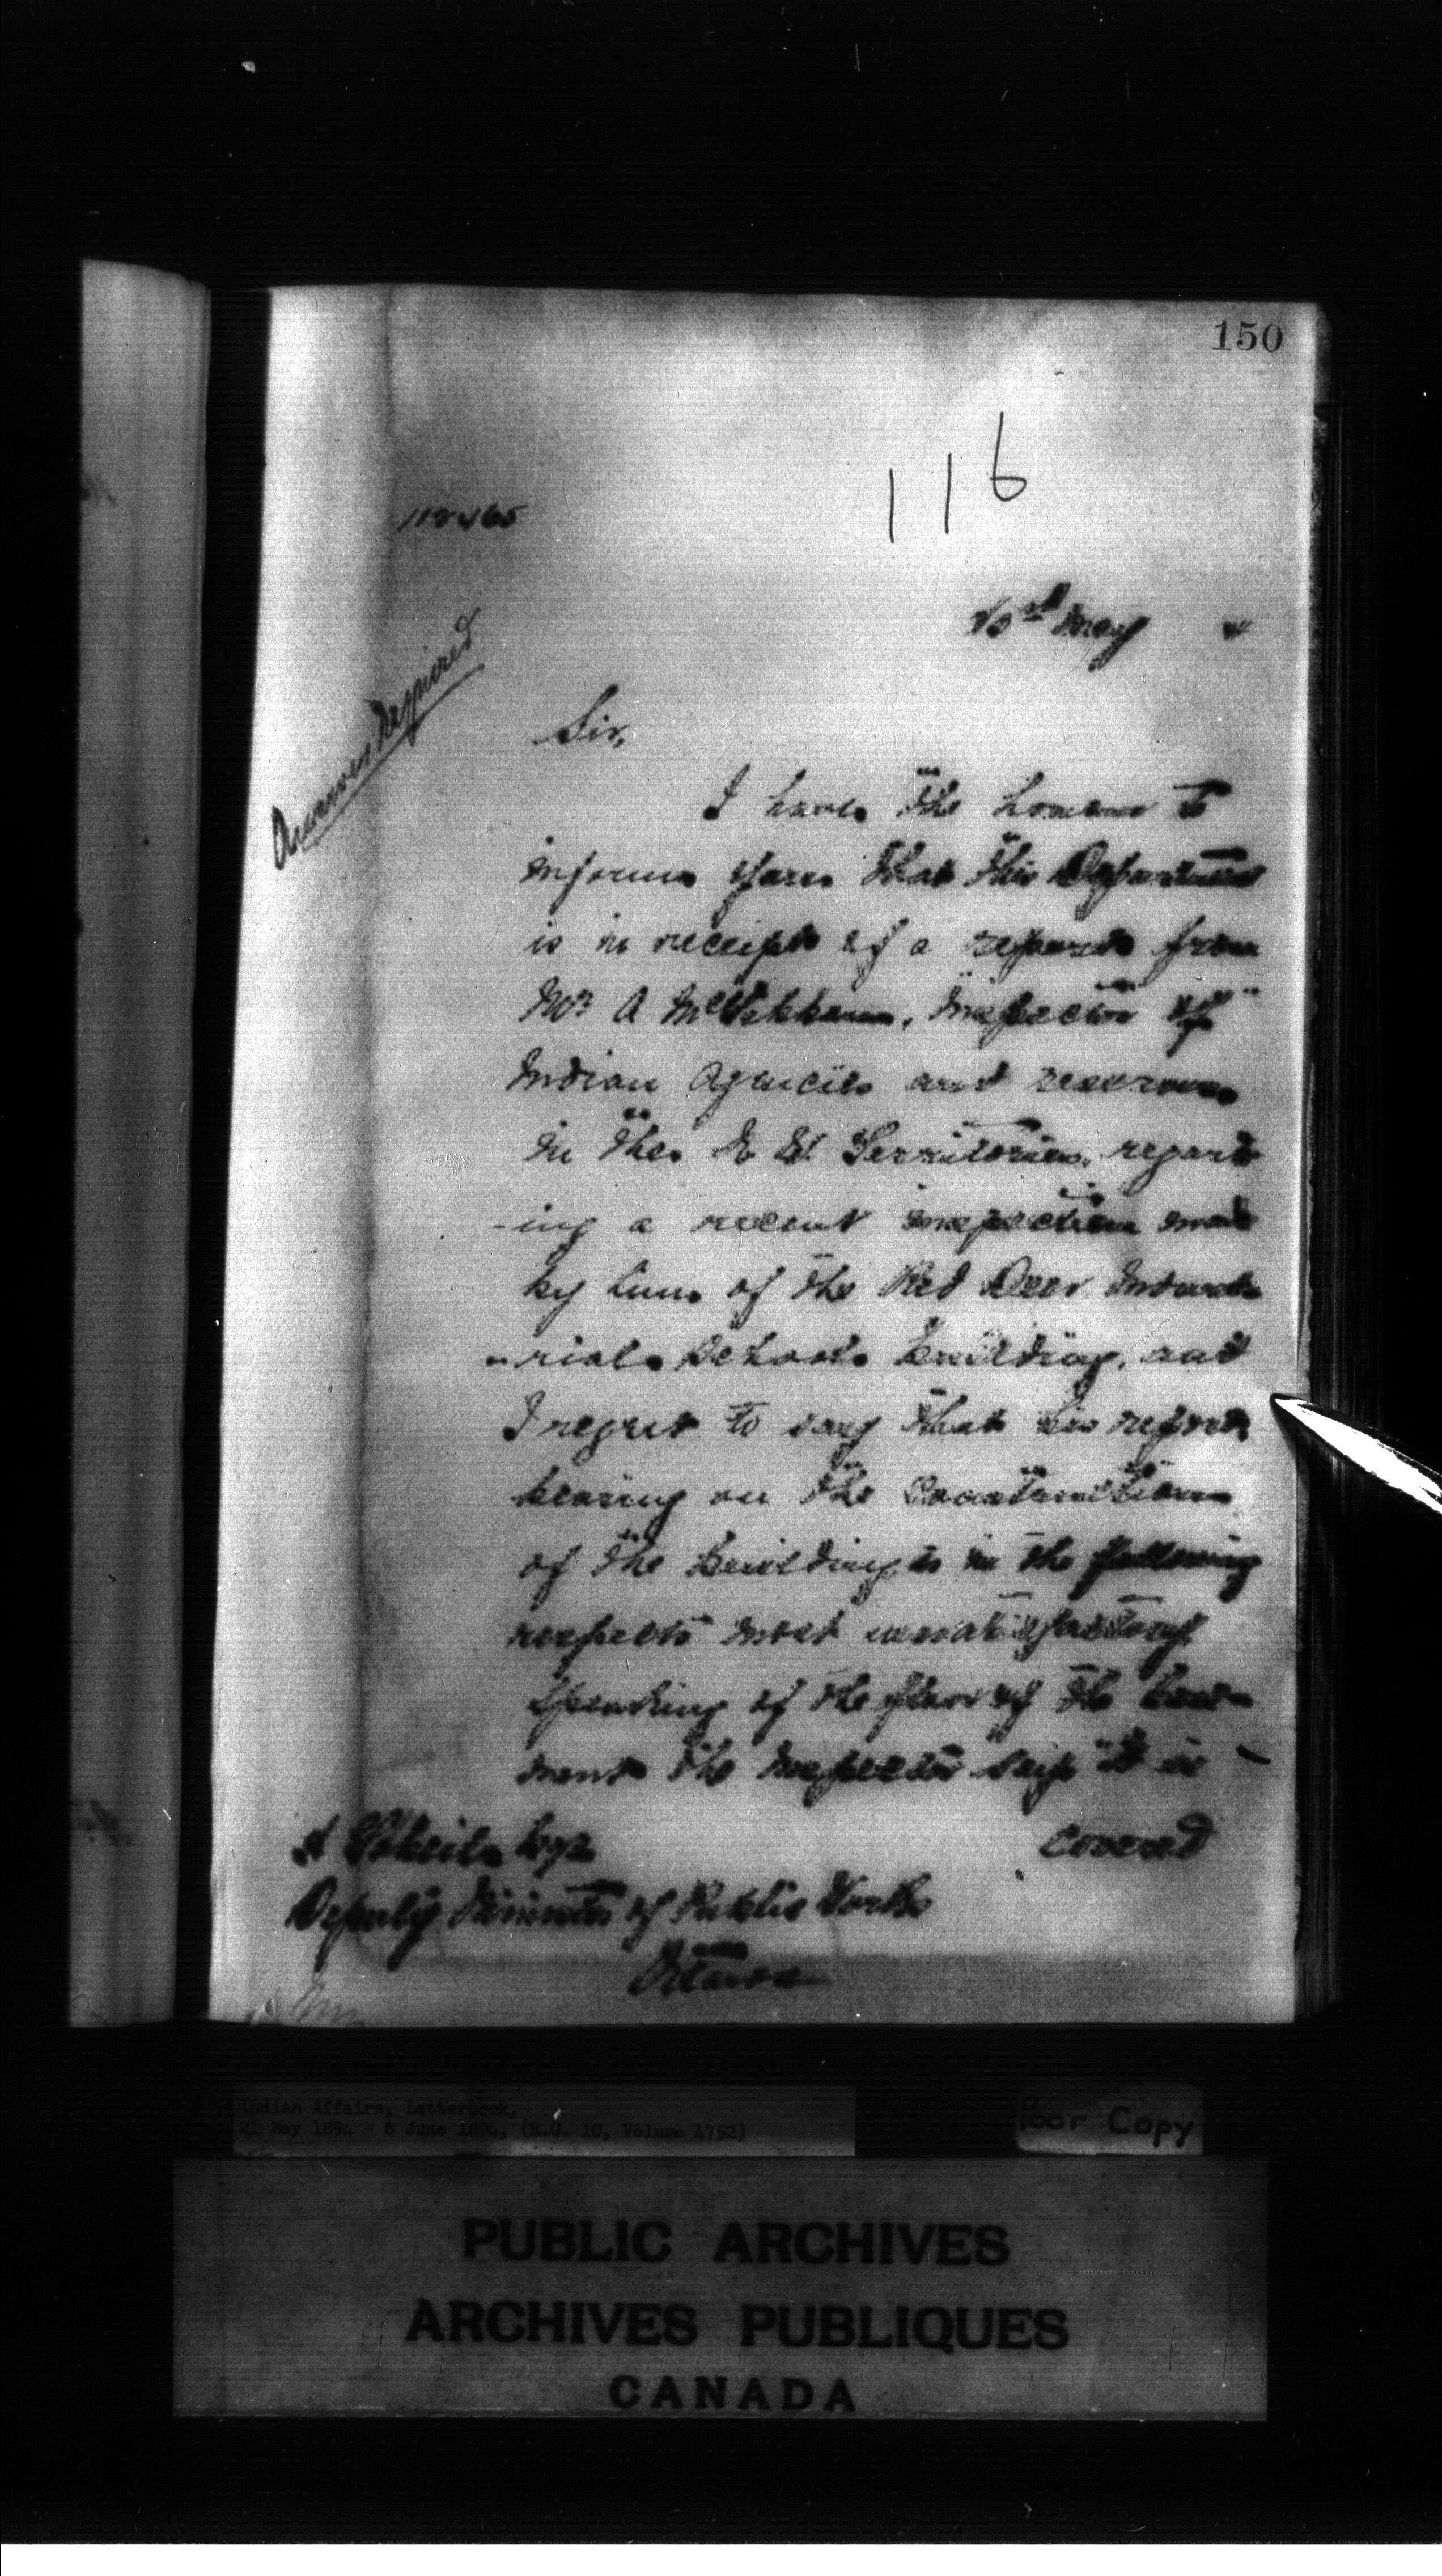 150
116
Answer Required
May
Sir,
I have the honour to
inform you that this Department
is in receipt of a report from
Mr A McGibbon, Inspector of
Indian Agencies and reserves
in the N. W. Territories, regard
-ing a recent inspection made
by him of the Red Deer Indust
-rial School building, and
I regret to say that his report
bearing on the construction
of the building is in the following
respects most unsatisfactory
Speaking of the floor of the base-
ment the Inspector says "it is
covered
Esqr
Deputy Minister of Public Works
Ottawa
Indian Affairs, Letterbook,
21 May 1894 - 6 June 1894, (R.G. 10, Volume 4752)
Poor Copy
PUBLIC ARCHIVES
ARCHIVES PUBLIQUES
CANADA